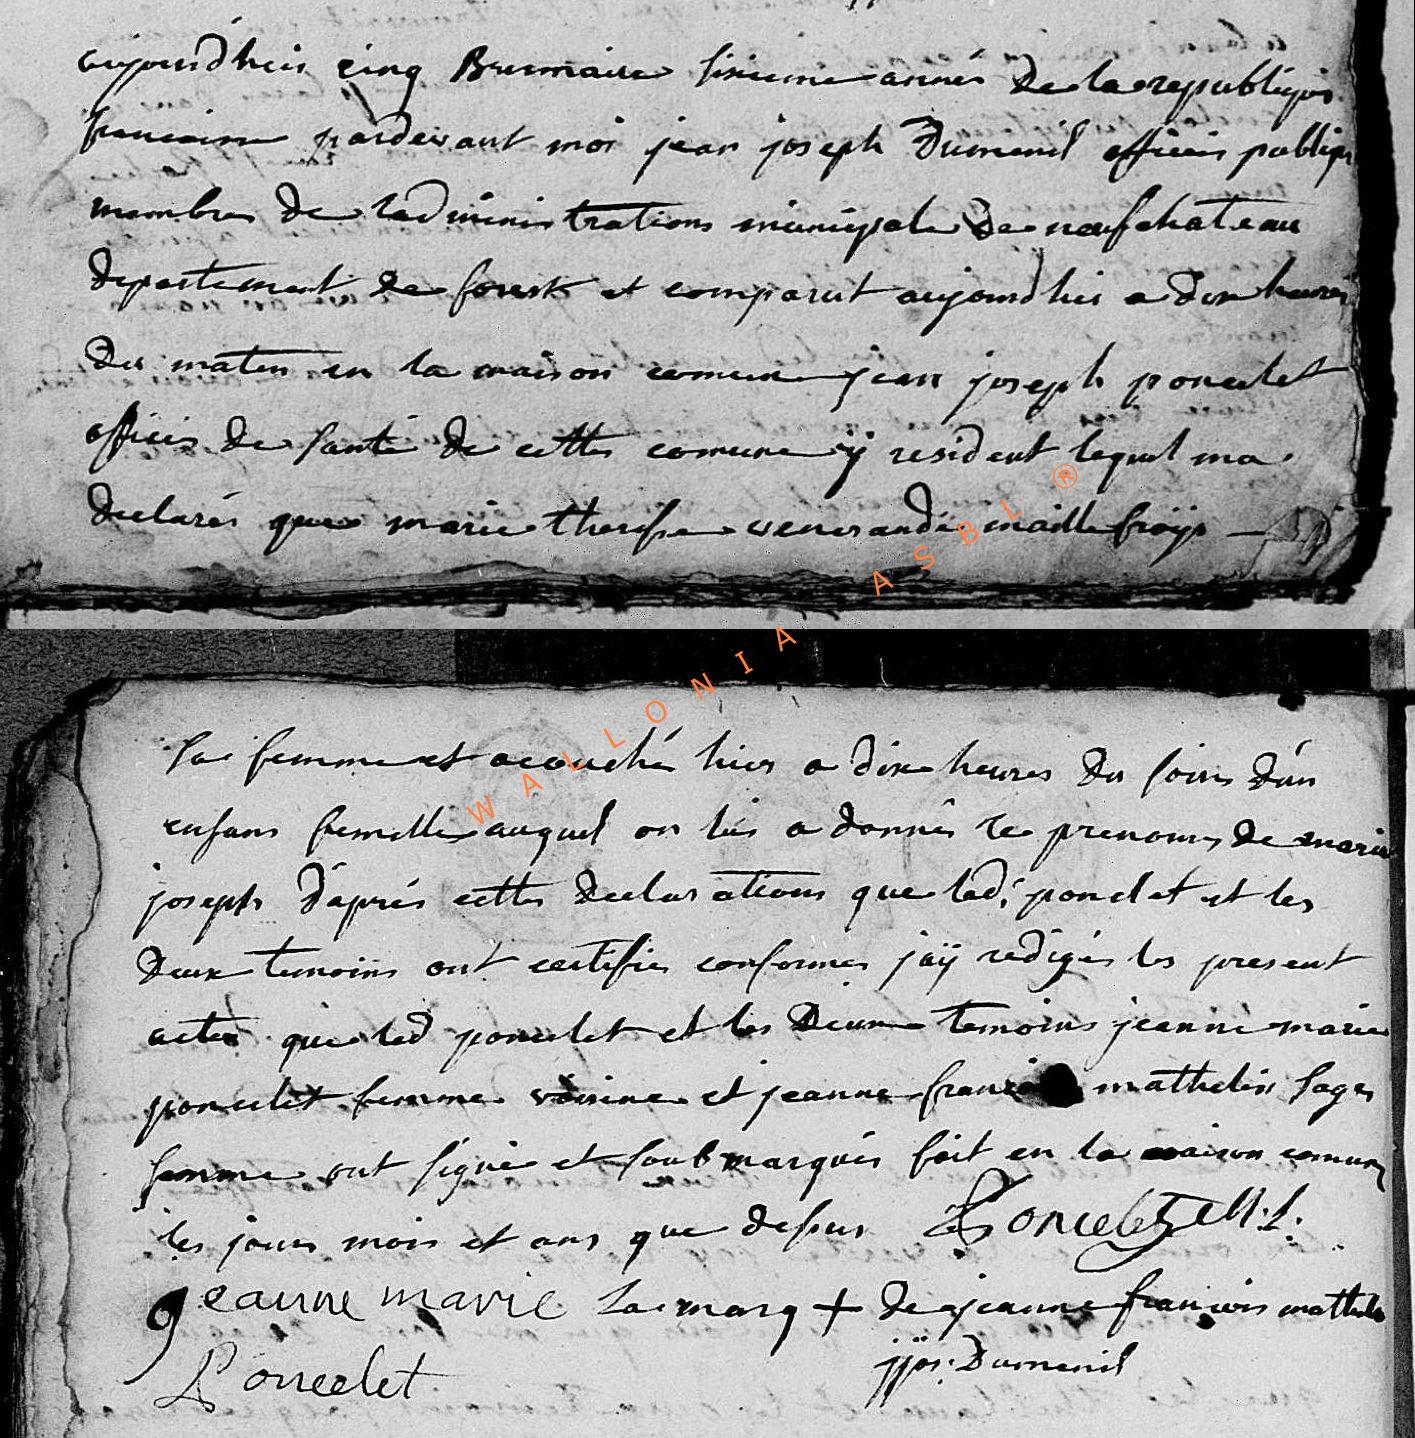 aujourdhuis cinq Brumaire sixieme année de la republiques
francaisse pardevant moi jean joseph Dumenil officies publiqs
membres de ladministrations municipale de neufchateau
departement de forest et comparut aujourdhui a dix heures
du maten en la maison comune jean joseph poncelet
officies de santé de cettes comune ÿ resident lequel ma
declarés que marie theresse venerande maillefroÿs
sa femme est acouchés hier a dix heures du soires d'un
enfans femelles auquel on luis a donnés le prenoms de marie
joseph d'aprés cettes declarations que led. ponclet et les
deux temoins ont certifies conformes j'aÿ redigés les present
actes que led poncelet et les deux temoins jeanne marie
poncelet femme voisine et jeanne francoi mathelin sages
femme ont signé et soubmarqués fait en la maison comune
les jours mois et ans que desus Poncelet
jeanne marie la marq + de jeanne francois mathelin
Poncelet jjos: Dumenil
WALLONIA ASBL ®